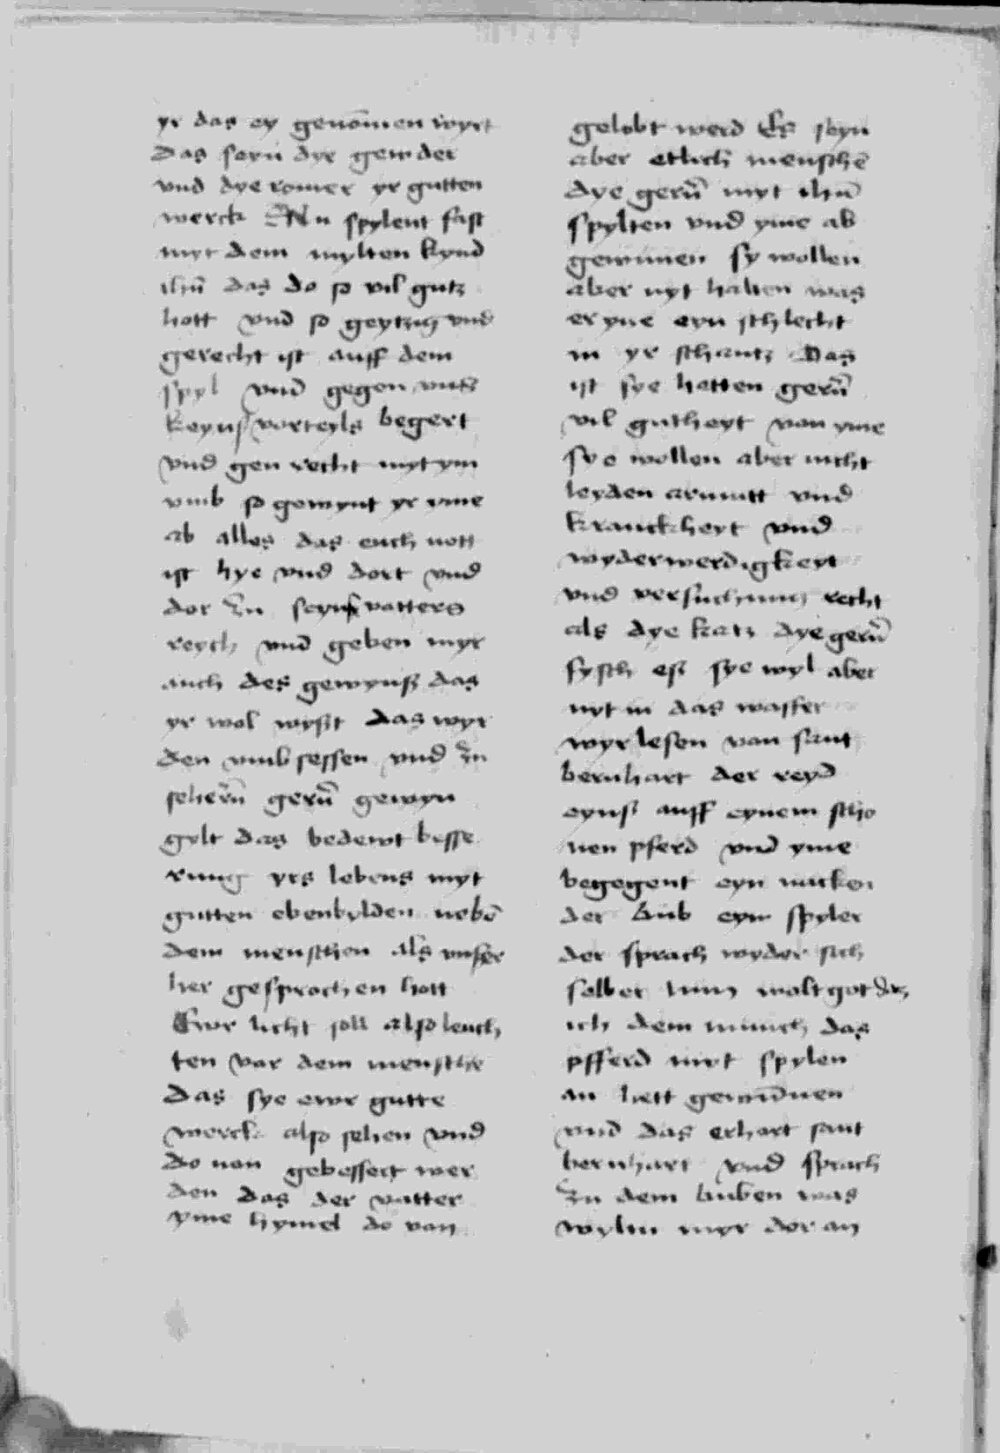 yr das ey genōmen wyrt
Das seyn dye gewder
vnd dye romer yr gutten
werck Nu spylent fast
myt dem mylten kynd
ihū das do so vil gutz
hott vnd so geytzig vnd
gerecht ist auff dem
spyl vnd gegen vnß
keynß vorteyls begert
vnd gen recht myt ym
vmb so gewynt yr yme
ab alles das euch nott
ist hye vnd dort vnd
dor zu seynß vatters
reych vnd geben myr
auch des gewynß das
yr wol wyßt das wyr
den vmb sessen vnd zu
sehern̄ gern̄ gewyn
gylt das bedewt besse
rung yrs lebens myt
gutten ebenbylden nebē
dem menschen als vnser
her gesprochen hott
Ewr licht soll also leuch
ten vor dem mensche
Das sye ewr gutte
werck also sehen vnd
do von gebessert wer
den das der vatter
yme hymel do van
gelobt werd Es seyn
aber etlich menschē
dye gern̄ myt ihū
spylten vnd yme ab
gewinnen sy wollen
aber nyt halten was
er yne eyn schlecht
in yr schantz Das
ist sye hetten gern̄
vil gutheyt von yme
sye wollen aber nicht
leyden armutt vnd
kranckheyt vnd
wyderwerdigkeyt
vnd versuchung recht
als dye katz dye gern̄
fysch eß sye wyl aber
nyt in das wasser
wyr lesen van sant
bernhart der reyd
eynß auff eynem scho
nen pferd vnd yme
begegent eyn nacken
der bub eyn spyler
der sprach wyder sich
selber nun wolt got das
ich dem munch das
pfferd myt spylen
an hett gewūnen
vnd das erhort sant
bernhart vnd sprach
zu dem buben was
wyltu myr dor an